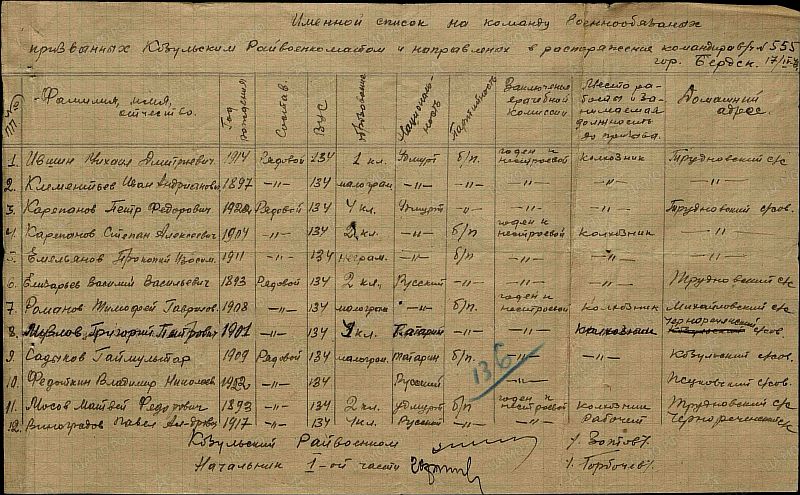 Именной список на команду военнообязаных
призванных Козульским Райвоенкоматом и направленых в распаряжения командира в/ч №555
гор. Бердск. 17/
№ пп Фамилия, имя, отчество. Год рождения Состав. ВУС Образование Национальность Партийность Заключение врачебной комиссии Место работы и занимаемая должность до призыва. Домашний адрес.
1. Ившин Михаил Дмитриевич. 1914 Рядовой 134 1 кл. Удмурт б/п. годен к нестроевой колхозник Трудновский с/с
2. Клементьев Иван Андрианович 1897 -"- 134 малограм -"- -"- -"- -"-
3. Карепанов Петр Федорович 192 Рядовой 134 4 кл. Удмурт Трудновский с/сов.
4. Карепанов Степан Алексеевич 1904 -"- 134 2 кл. -"- б/п годен к нестроевой колхозник -"-
5. Емельянов Прокопий 1911 -"- 134 неграм. -"- б/п -"- -"- -"-
6. Елизарьев Василий Васильевич 1893 Рядовой 134 2 кл., Русский -"- -"- Трудновский с/с
7. Романов Тимофей Гаврилов. 1908 -"- 134 малограм -"- б/п годен к нестроевой колхозник Михайловский с/с
8. Григорий Петрович 1901 -"- 134 кл. Татарин -"- колхозник Чернореченский с/сов
9. Садыков Гаймультар 1909 Рядовой 134 малограм. татарин б/п. -"- -"- Козульский с/сов.
10. Федоткин Владимир Николаев 1902 -"- 134 Русский -"- с/сов.
136
11. Мосов Матвей Федорович 1893 -"- 134 2 кл. удмурт б/п годен к нестроевой колхозник Трудновский с/с
12. Виноградов Павел 1917 -"- 134 4 кл. Русский -"- рабочий Чернореченский с/с
Козульский Райвоенком /Зоптов/.
Начальник 1-ой части /Горбачев/.